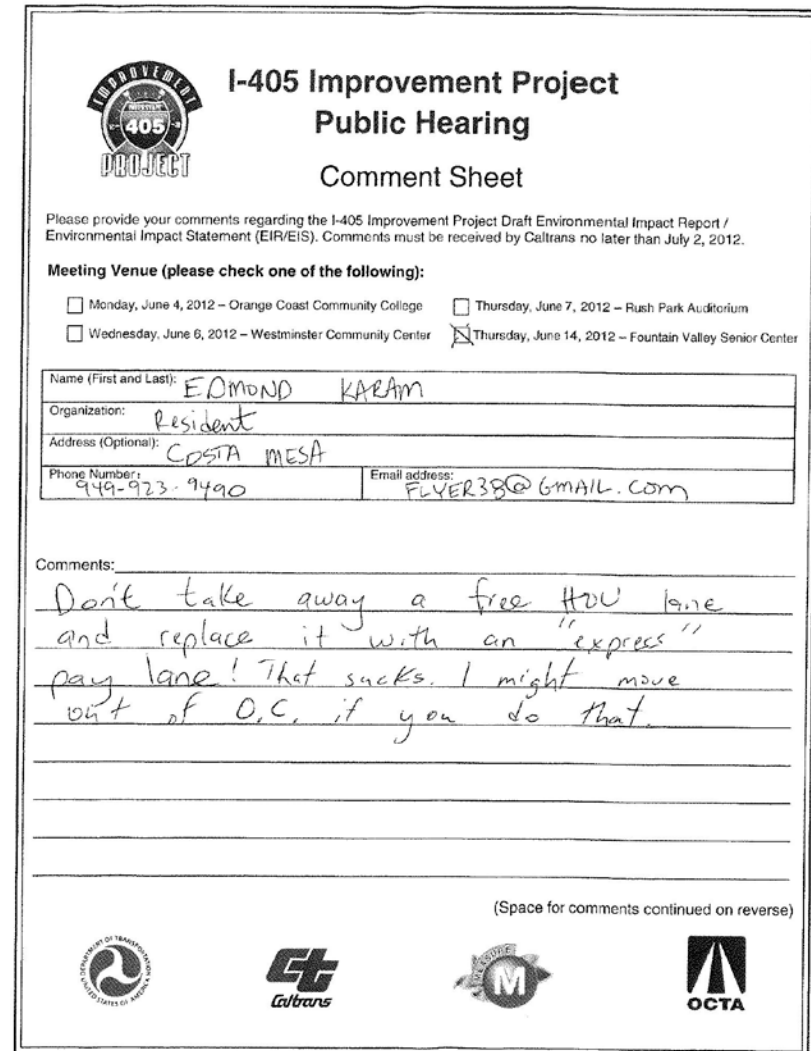 IMPROVEMENT
INTERSTATE
405
PROJECT
I-405 Improvement Project
Public Hearing
Comment Sheet
Please provide your comments regarding the I-405 Improvement Project Draft Environmental Impact Report /
Environmental Impact Statement (EIR/EIS). Comments must be received by Caltrans no later than July 2, 2012.
Meeting Venue (please check one of the following):
Monday, June 4, 2012 – Orange Coast Community College
Thursday, June 7, 2012 – Rush Park Auditorium
Wednesday, June 6, 2012 – Westminster Community Center
Thursday, June 14, 2012 – Fountain Valley Senior Center
Name (First and Last): EDMOND KARAM
Organization: Resident
Address (Optional): COSTA MESA
Phone Number: 949-923-9490
Email address: FLYER38@GMAIL.COM
Comments:
Don't take away a free HOV lane
and replace it with an "express"
pay lane! That sucks. I might move
out of O.C. if you do that.
(Space for comments continued on reverse)
DEPARTMENT OF TRANSPORTATION
UNITED STATES OF AMERICA
Ct
Caltrans
MEASURE
M
OCTA